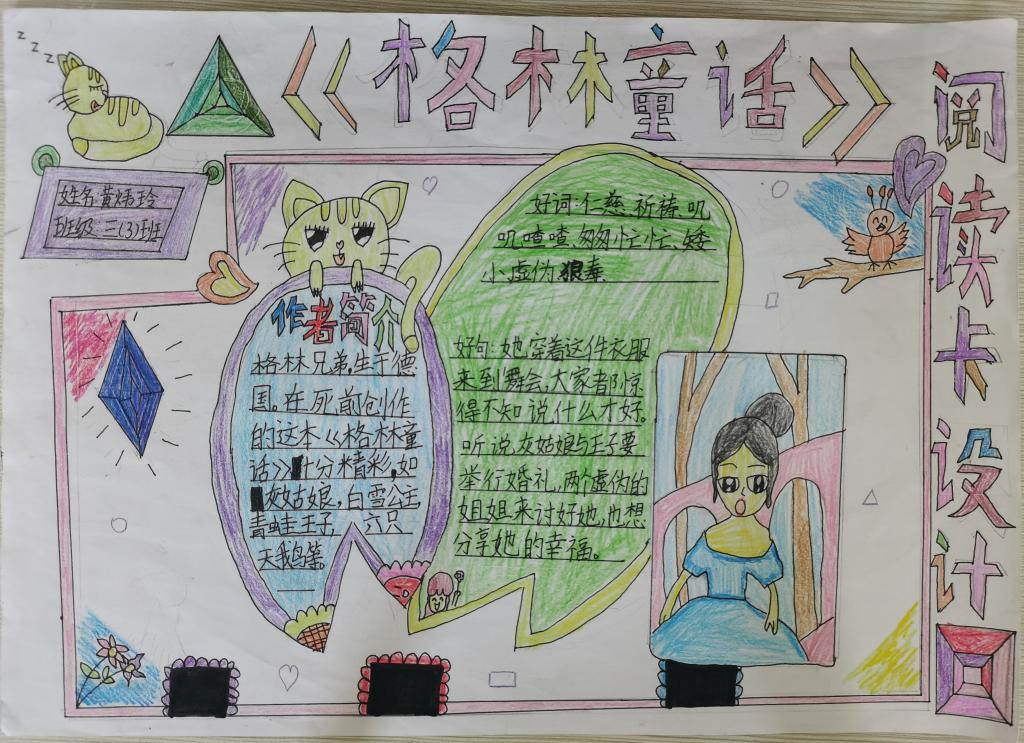 zzz
《格林童话》
阅读卡设计
姓名:黄炜玲
班级 三(3)班
作者简介
格林兄弟,生于德
国。在死前创作
的这本《格林童
话》十分精彩,如
灰姑娘,白雪公主
青蛙王子,六只
天鹅等。
好词:仁慈、祈祷、叽
叽喳喳、匆匆忙忙、矮
小虚伪、狠毒
好句:她穿着这件衣服
来到舞会,大家都惊
得不知说什么才好。
听说灰姑娘与王子要
举行婚礼,两个虚伪的
姐姐来讨好她,也想
分享她的幸福。